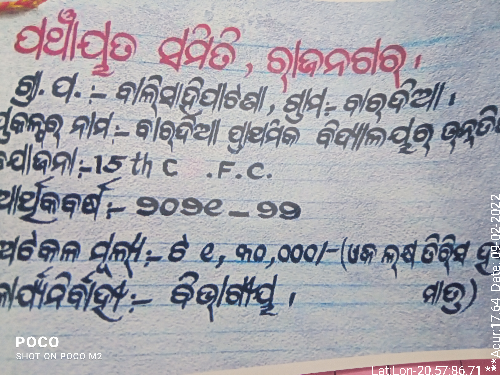 ପଞ୍ଚାୟତ ସମିତି, ରାଜନଗର,
ଗ୍ରା. ପ. :- ବାଲିସାହିପାଟଣା, ଗ୍ରାମ:- ବାରଦିଆ,
ପ୍ରକଳ୍ପର ନାମ:- ବାରଦିଆ ପ୍ରାଥମିକ ବିଦ୍ୟାଳୟର ଉନ୍ନତି
ଯୋଜନା:-15th C .F.C.
ଆର୍ଥିକବର୍ଷ:- ୨୦୨୧ - ୨୨
ଅଟକଳ ମୂଲ୍ୟ:- ଟ ୧,୩୦,୦୦୦/-(ଏକ ଲକ୍ଷ ତିରିସ ହ
କାର୍ଯ୍ୟନିର୍ବାହୀ:- ବିଭାଗୀୟ, ମାତ୍ର)
POCO
SHOT ON POCO M2
LatLon-20.57,86.71 ***Acur:17.64, Date: 09-02-2022